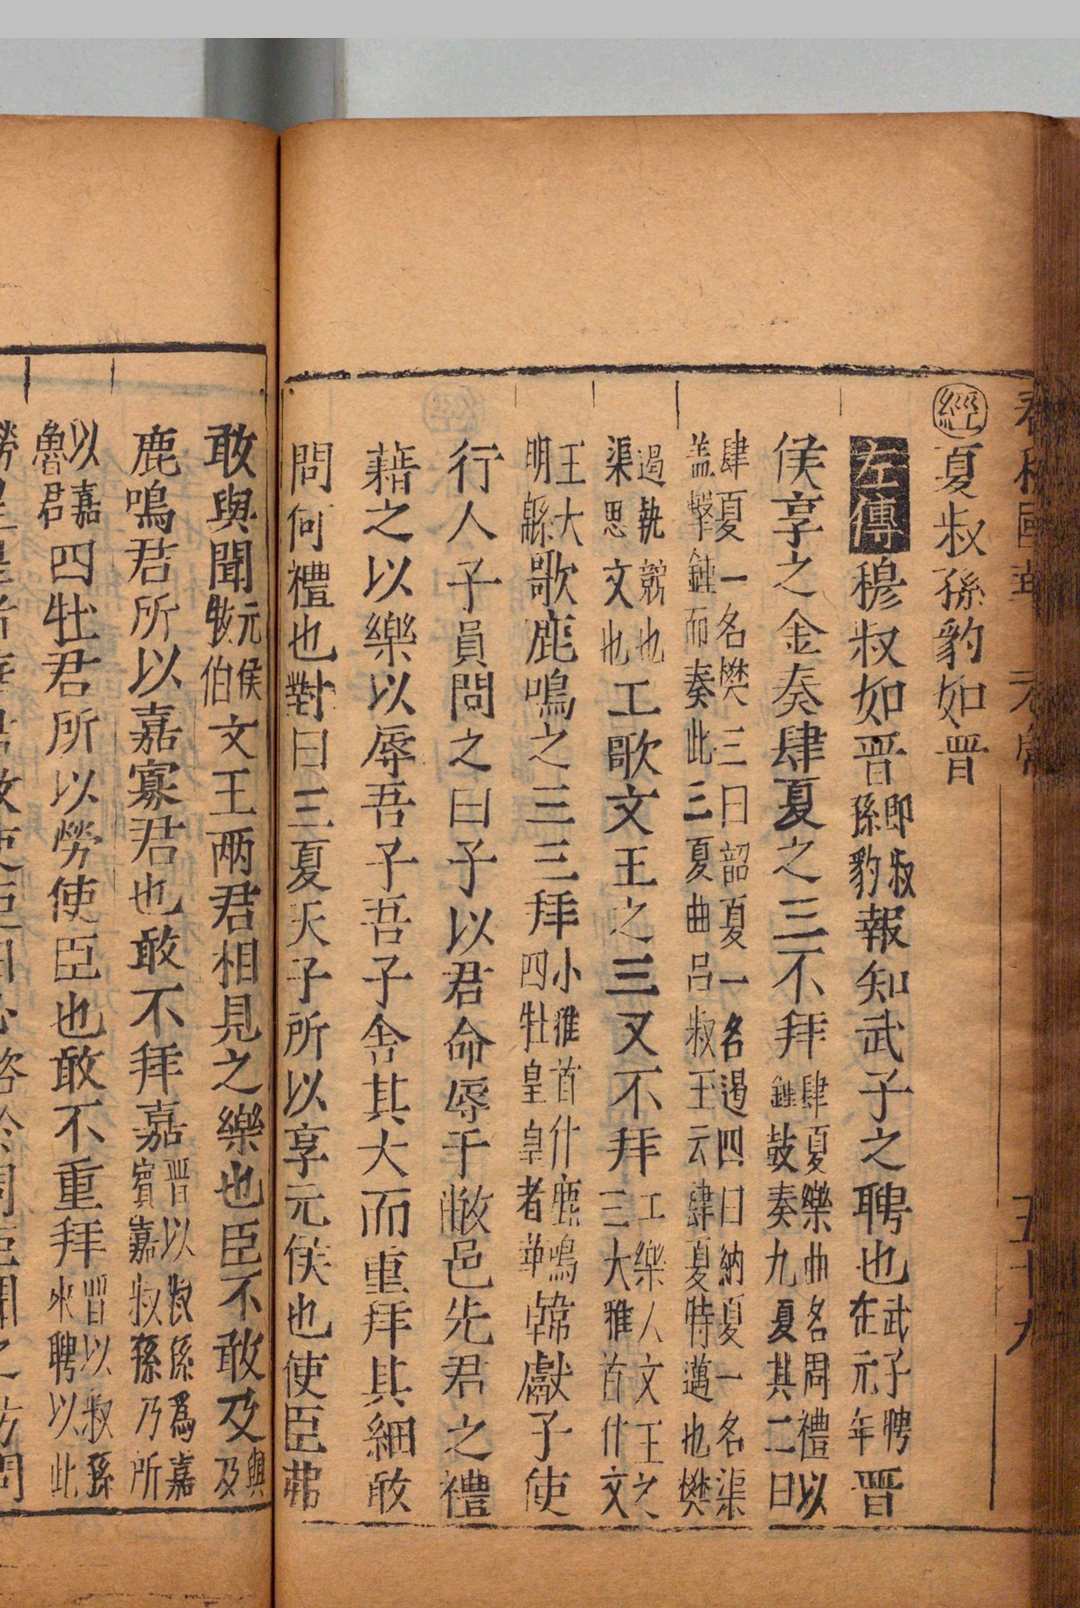 春秋國華　五十九
經夏叔孫豹如晉
左傳穆叔如晉即叔孫豹報知武子之聘也武子聘在元年晉
侯享之金奏肆夏之三不拜肆夏樂曲名周禮以鍾鼓奏九夏其二曰
肆夏一名樊三曰韶夏一名遏四曰納夏一名渠盖擊鍾而奏此三夏曲呂叔玉云肆夏時邁也樊
遏執競也渠思文也工歌文王之三又不拜工樂人文王之三大雅首什文
王大明緜歌鹿鳴之三三拜小雅首什鹿鳴四牡皇皇者華韓獻子使
行人子員問之曰子以君命辱于敝邑先君之禮
藉之以樂以辱吾子吾子舍其大而重拜其細敢
問何禮也對曰三夏天子所以享元侯也使臣弗
敢與聞元侯牧伯文王兩君相見之樂也臣不敢及與及
鹿鳴君所以嘉寡君也敢不拜嘉晉以叔孫為嘉賓嘉叔孫乃所
以嘉魯君四牡君所以勞使臣也敢不重拜晉以叔孫來聘以此